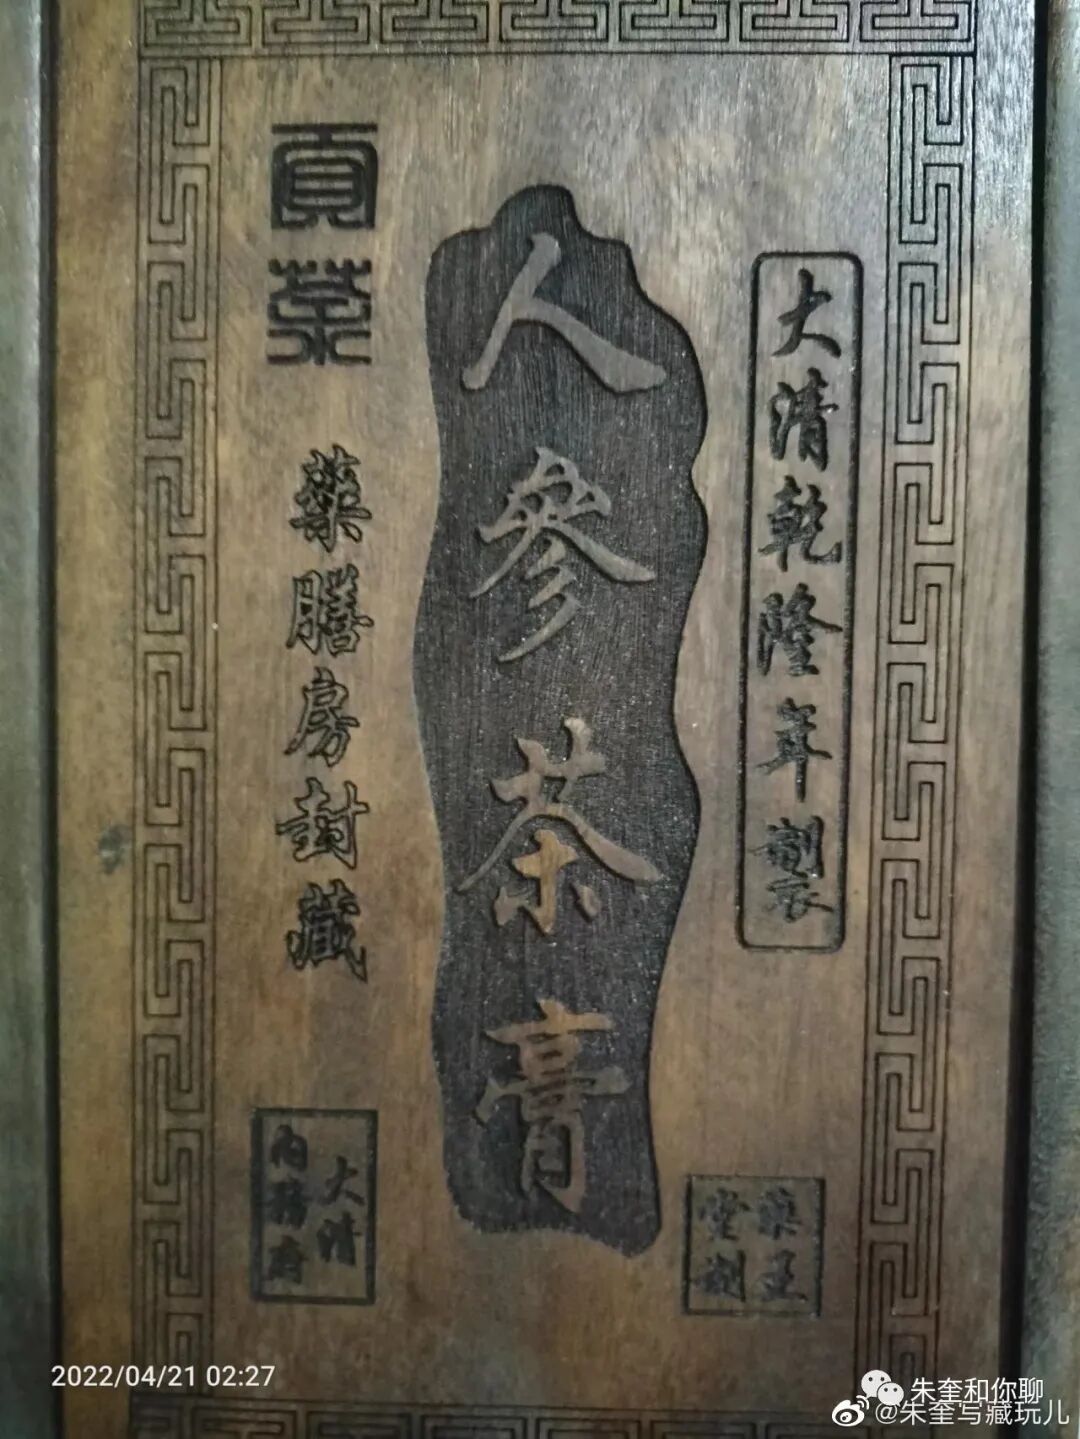 大清乾隆年製
人參茶膏
貢茶
藥膳房封藏
藥王
堂制
大清
內務府
2022/04/21 02:27
朱奎和你聊
@朱奎写藏玩儿